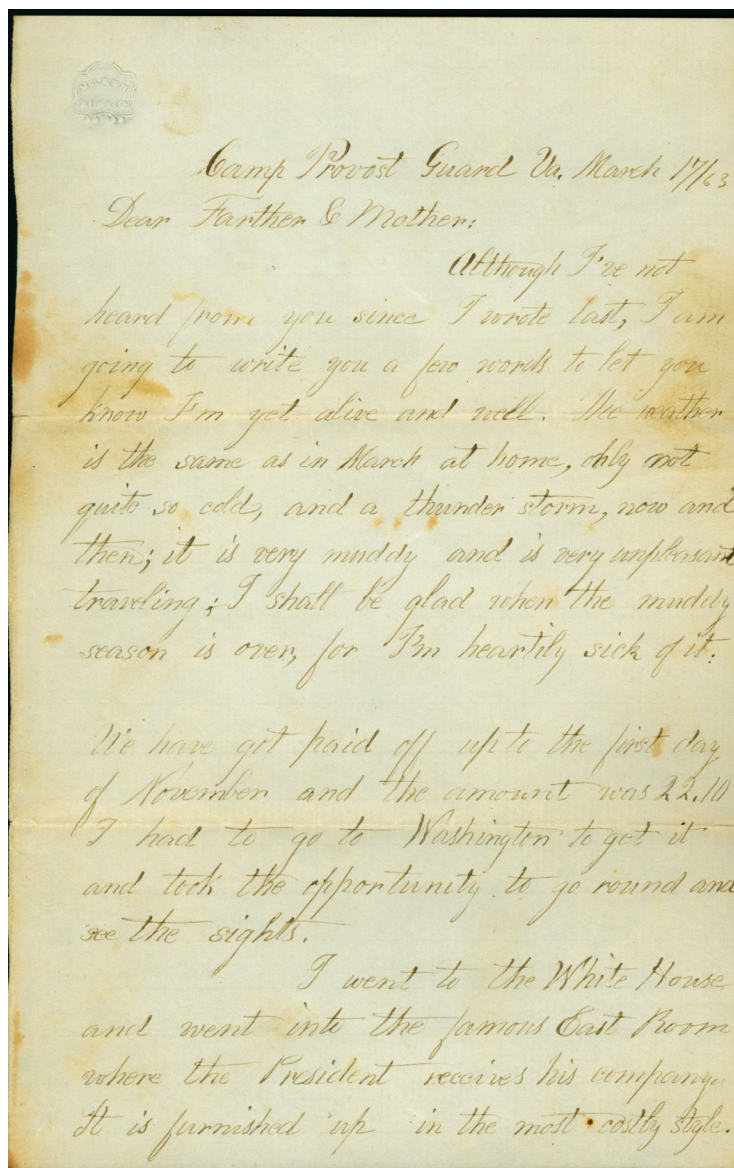 Camp Provost Guard Va. March 17/63
Dear Farther & Mother:
Although I've not
heard from you since I wrote last, I am
going to write you a few words to let you
know I'm yet alive and well. The weather
is the same as in March at home, only not
quite so cold, and a thunder storm, now and
then; it is very muddy and is very unpleasant
traveling; I shall be glad when the muddy
season is over, for I'm heartily sick of it.
We have got paid off up to the first day
of November and the amount was 22.10
I had to go to Washington to get it
and took the opportunity to go round and
see the sights.
I went to the White House
and went into the famous East Room
where the President receives his company.
It is furnished up in the most costly style.